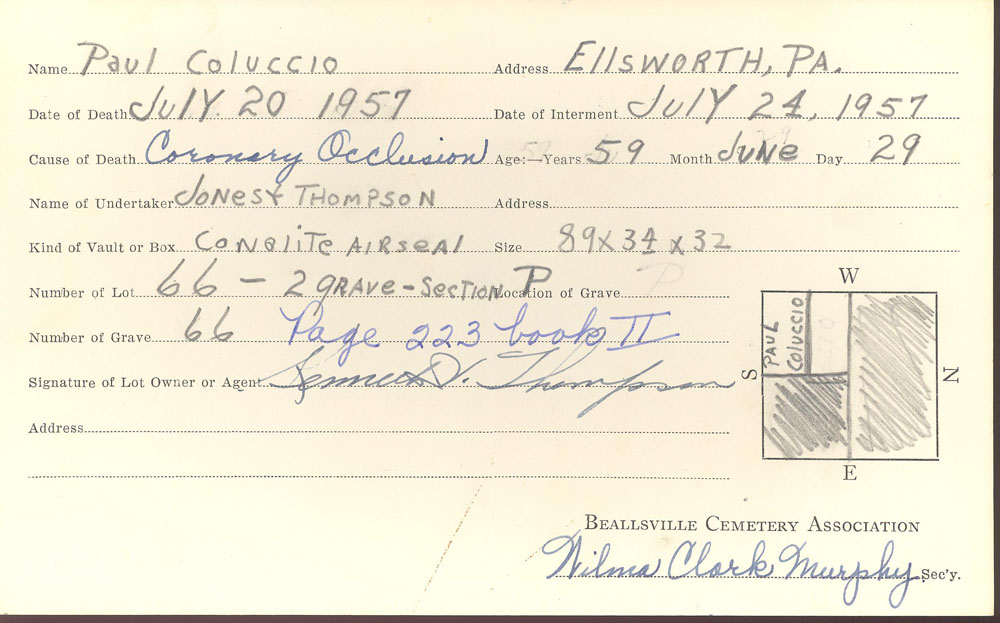 Name Paul Coluccio Address Ellsworth, PA.
Date of Death July. 20 1957 Date of Interment July 24, 1957
Cause of Death Coronary Occlusion Age:—Years 59 Month June Day 29
Name of Undertaker Jones & Thompson Address
Kind of Vault or Box Conolite Airseal Size 89 x 34 x 32
Number of Lot 66 - 2 grave - Section P Location of Grave P
Number of Grave 66 Page 223 book II
Signature of Lot Owner or Agent Kenneth V. Thompson
Address
W
S
PAUL
COLUCCIO
N
E
Beallsville Cemetery Association
Wilma Clark Murphy Sec'y.